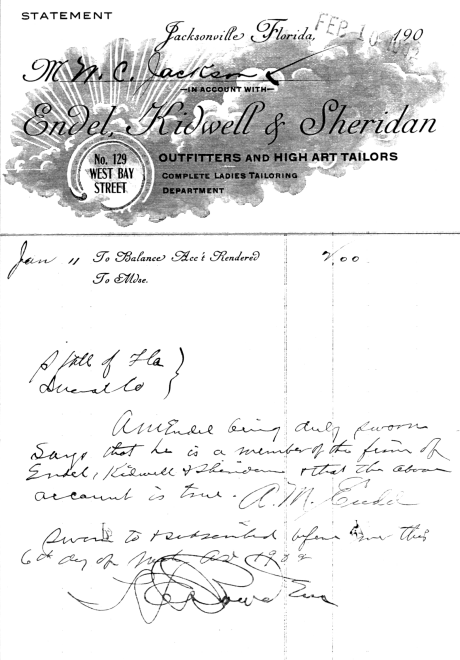 STATEMENT
Jacksonville Florida, 190
FEB 10 1902
M W. C. Jackson
—IN ACCOUNT WITH—
Endel, Kidwell & Sheridan
No. 129
WEST BAY
STREET
OUTFITTERS AND HIGH ART TAILORS
COMPLETE LADIES TAILORING
DEPARTMENT
Jan 11 To Balance Acc't Rendered 2/00
To Mdse.
State of Fla }
Duval Co
A M Endel being duly sworn
says that he is a member of the firm of
Endel, Kidwell & Sheridan & that the above
account is true. A. M. Endel
Sworn to & subscribed before me this
6th day of A.D. 1902